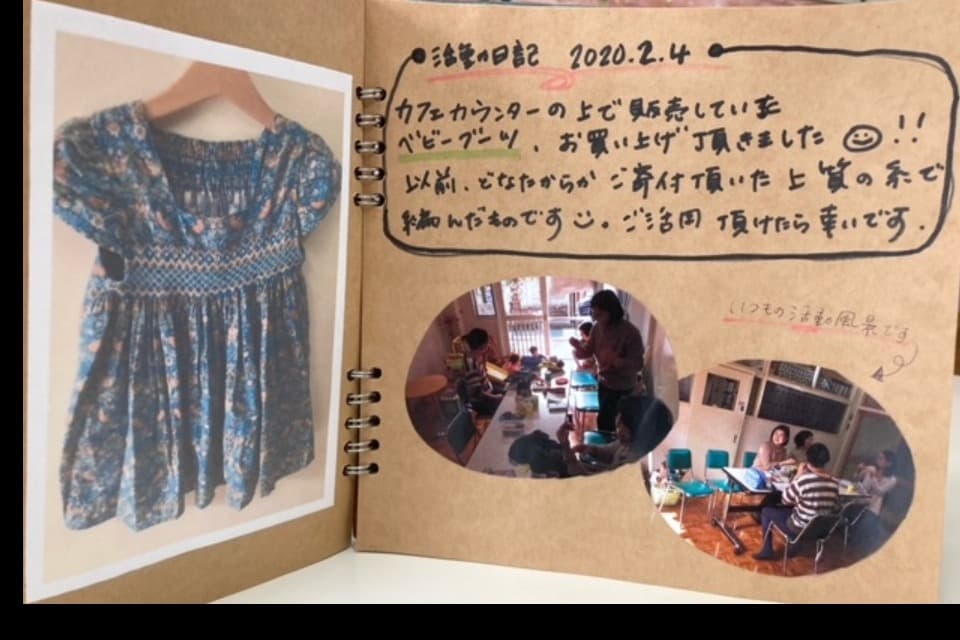 活動日記 2020.2.4
カフェカウンターの上で販売していた
ベビーブーツ、お買い上げ頂きました!!
以前、どなたからかご寄付頂いた上質の糸で
編んだものです。ご活用頂けたら幸いです.
いつもの活動風景です